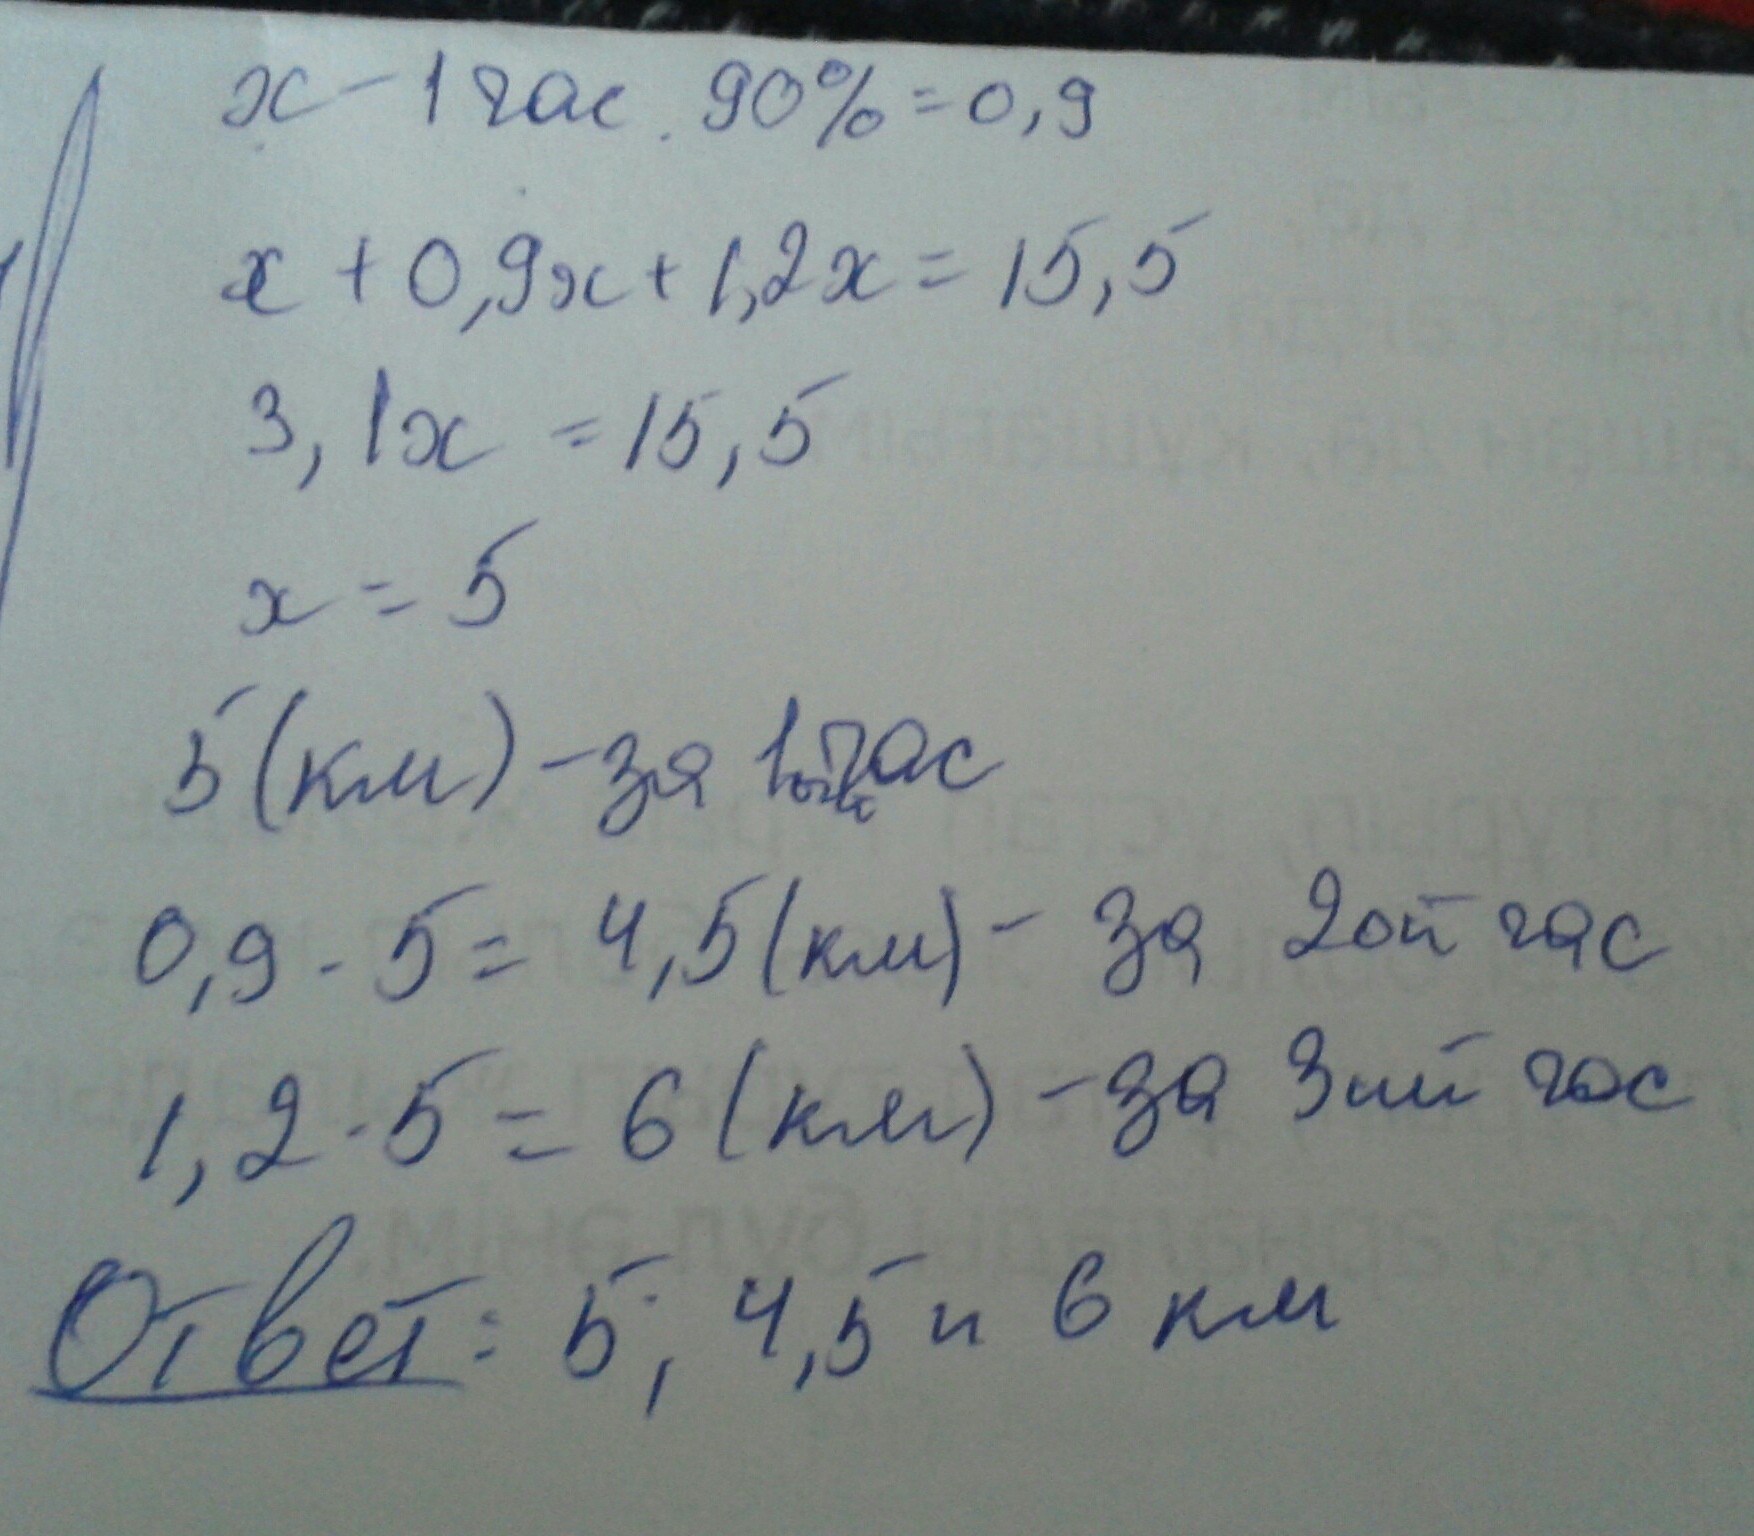 х - 1 час. 90% = 0,9
х + 0,9х + 1,2х = 15,5
3,1х = 15,5
х = 5
5 (км) - за 1 час
0,9 · 5 = 4,5 (км) - за 2ой час
1,2 · 5 = 6 (км) - за 3ий час
Ответ: 5; 4,5 и 6 км